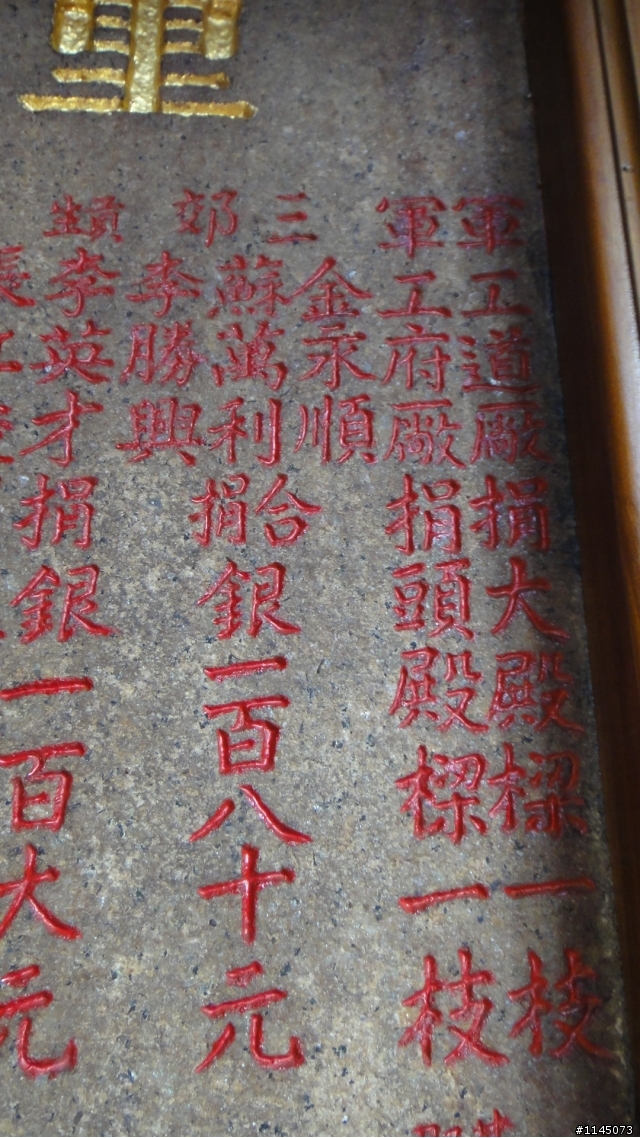 軍工道廠捐大殿樑一枝
軍工府廠捐頭殿樑一枝
三郊
金永順
蘇萬利
李勝興
合捐銀一百八十元
李英才捐銀一百大元